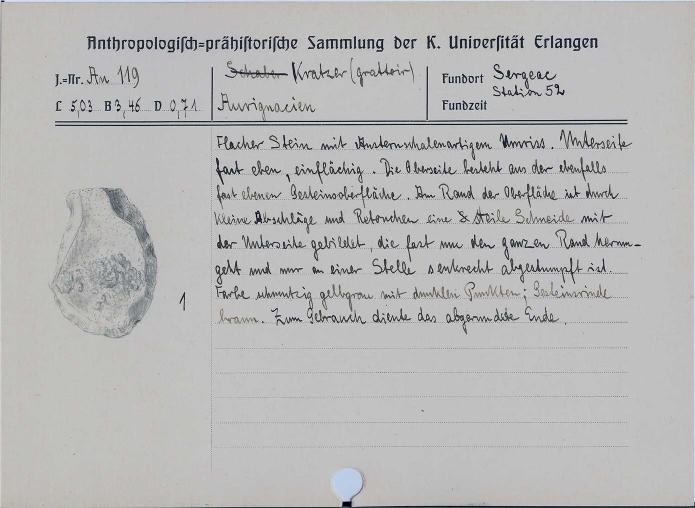 Anthropologisch=prähistorische Sammlung der K. Universität Erlangen
J.=Nr. An 119
L 5,03 B 3,46 D 0,71
Schaber Kratzer (grattoir)
Aurignacien
Fundort Sergeac
Station 52
Fundzeit
Flacher Stein mit Austernschalenartigem Umriss. Unterseite
fast eben, einflächig. Die Oberseite besteht aus der ebenfalls
fast ebenen Gesteinsoberfläche. Am Rand der Oberfläche ist durch
kleine Abschläge und Retouchen eine steile Schneide mit
der Unterseite gebildet, die fast um den ganzen Rand herum-
geht und nur an einer Stelle senkrecht abgestumpft ist.
Farbe schmutzig gelbgrau mit dunklen Punkten; Gesteinsrinde
braun. Zum Gebrauch diente das abgerundete Ende.
1